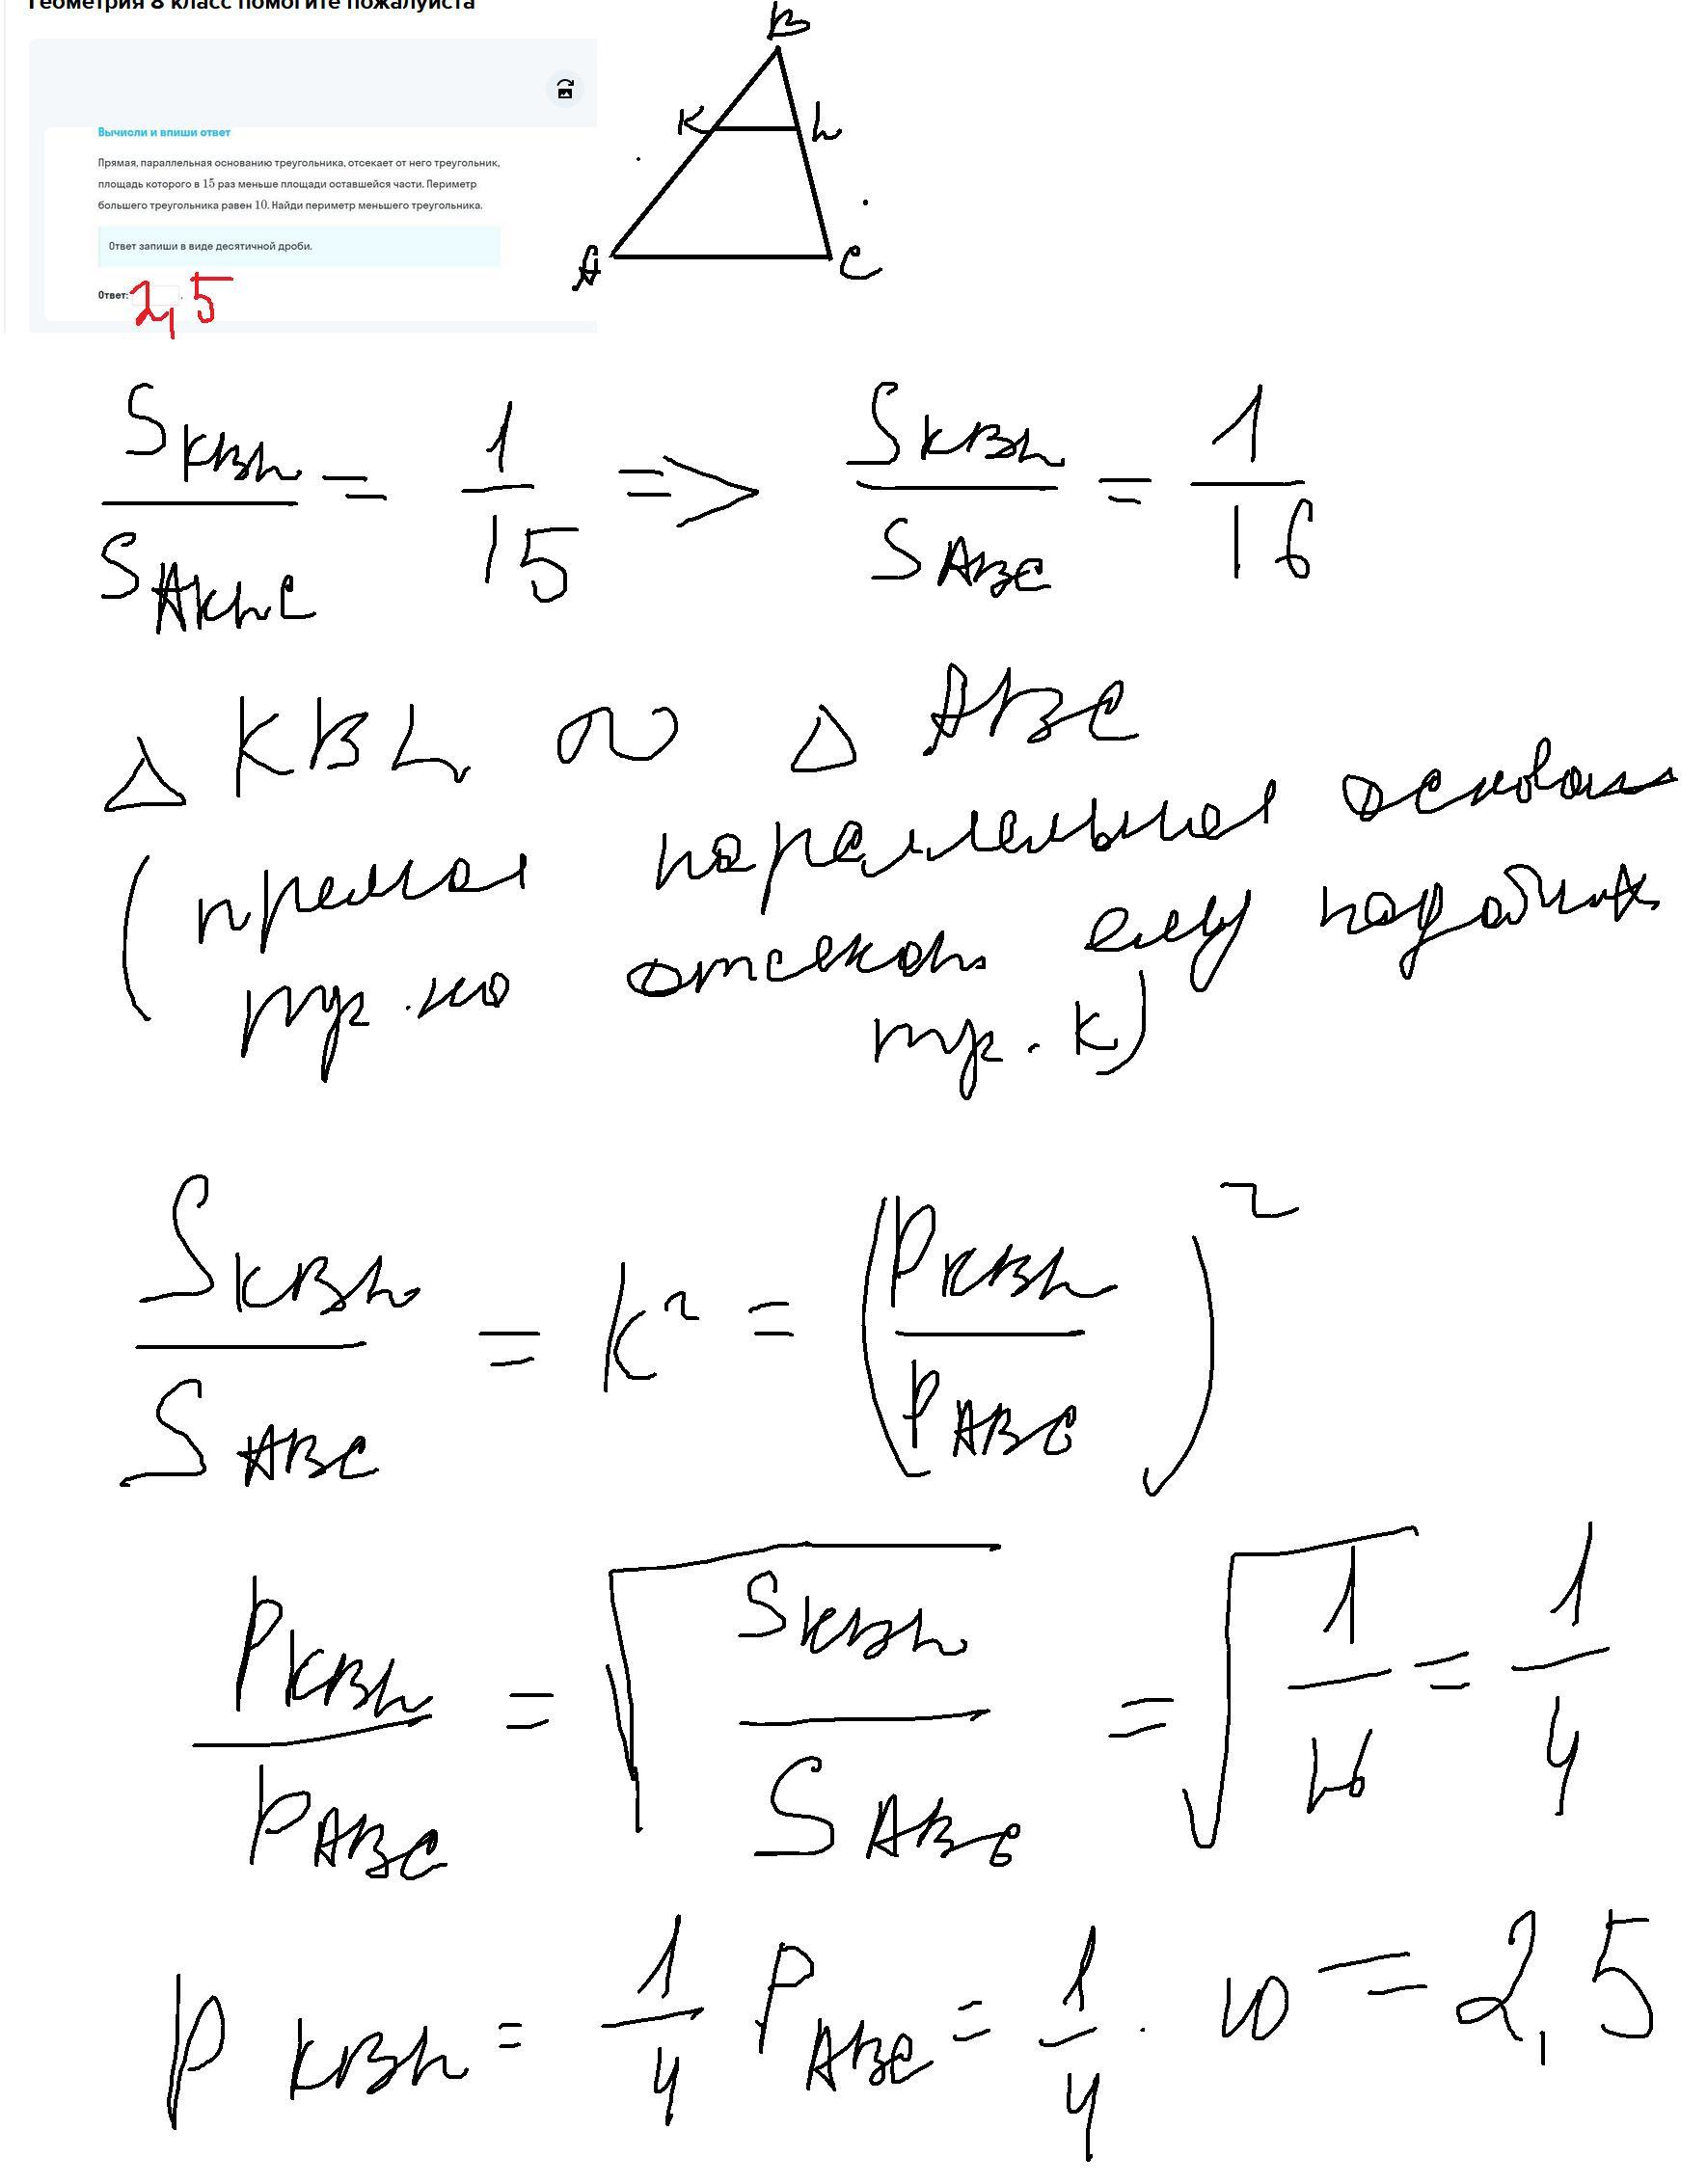 Геометрия 8 класс помогите пожалуйста
Вычисли и впиши ответ
Прямая, параллельная основанию треугольника, отсекает от него треугольник,
площадь которого в 15 раз меньше площади оставшейся части. Периметр
большего треугольника равен 10. Найди периметр меньшего треугольника.
Ответ запиши в виде десятичной дроби.
Ответ: 2,5
B
K L
A C
S KBL / S AKLC = 1/15 => S KBL / S ABC = 1/16
△ KBL ∾ △ ABC
(прямая параллельная основан
тр-ка отсекает ему подобный
тр-к)
S KBL / S ABC = k² = (P KBL / P ABC)²
P KBL / P ABC = √(S KBL / S ABC) = √(1/16) = 1/4
P KBL = 1/4 P ABC = 1/4 · 10 = 2,5